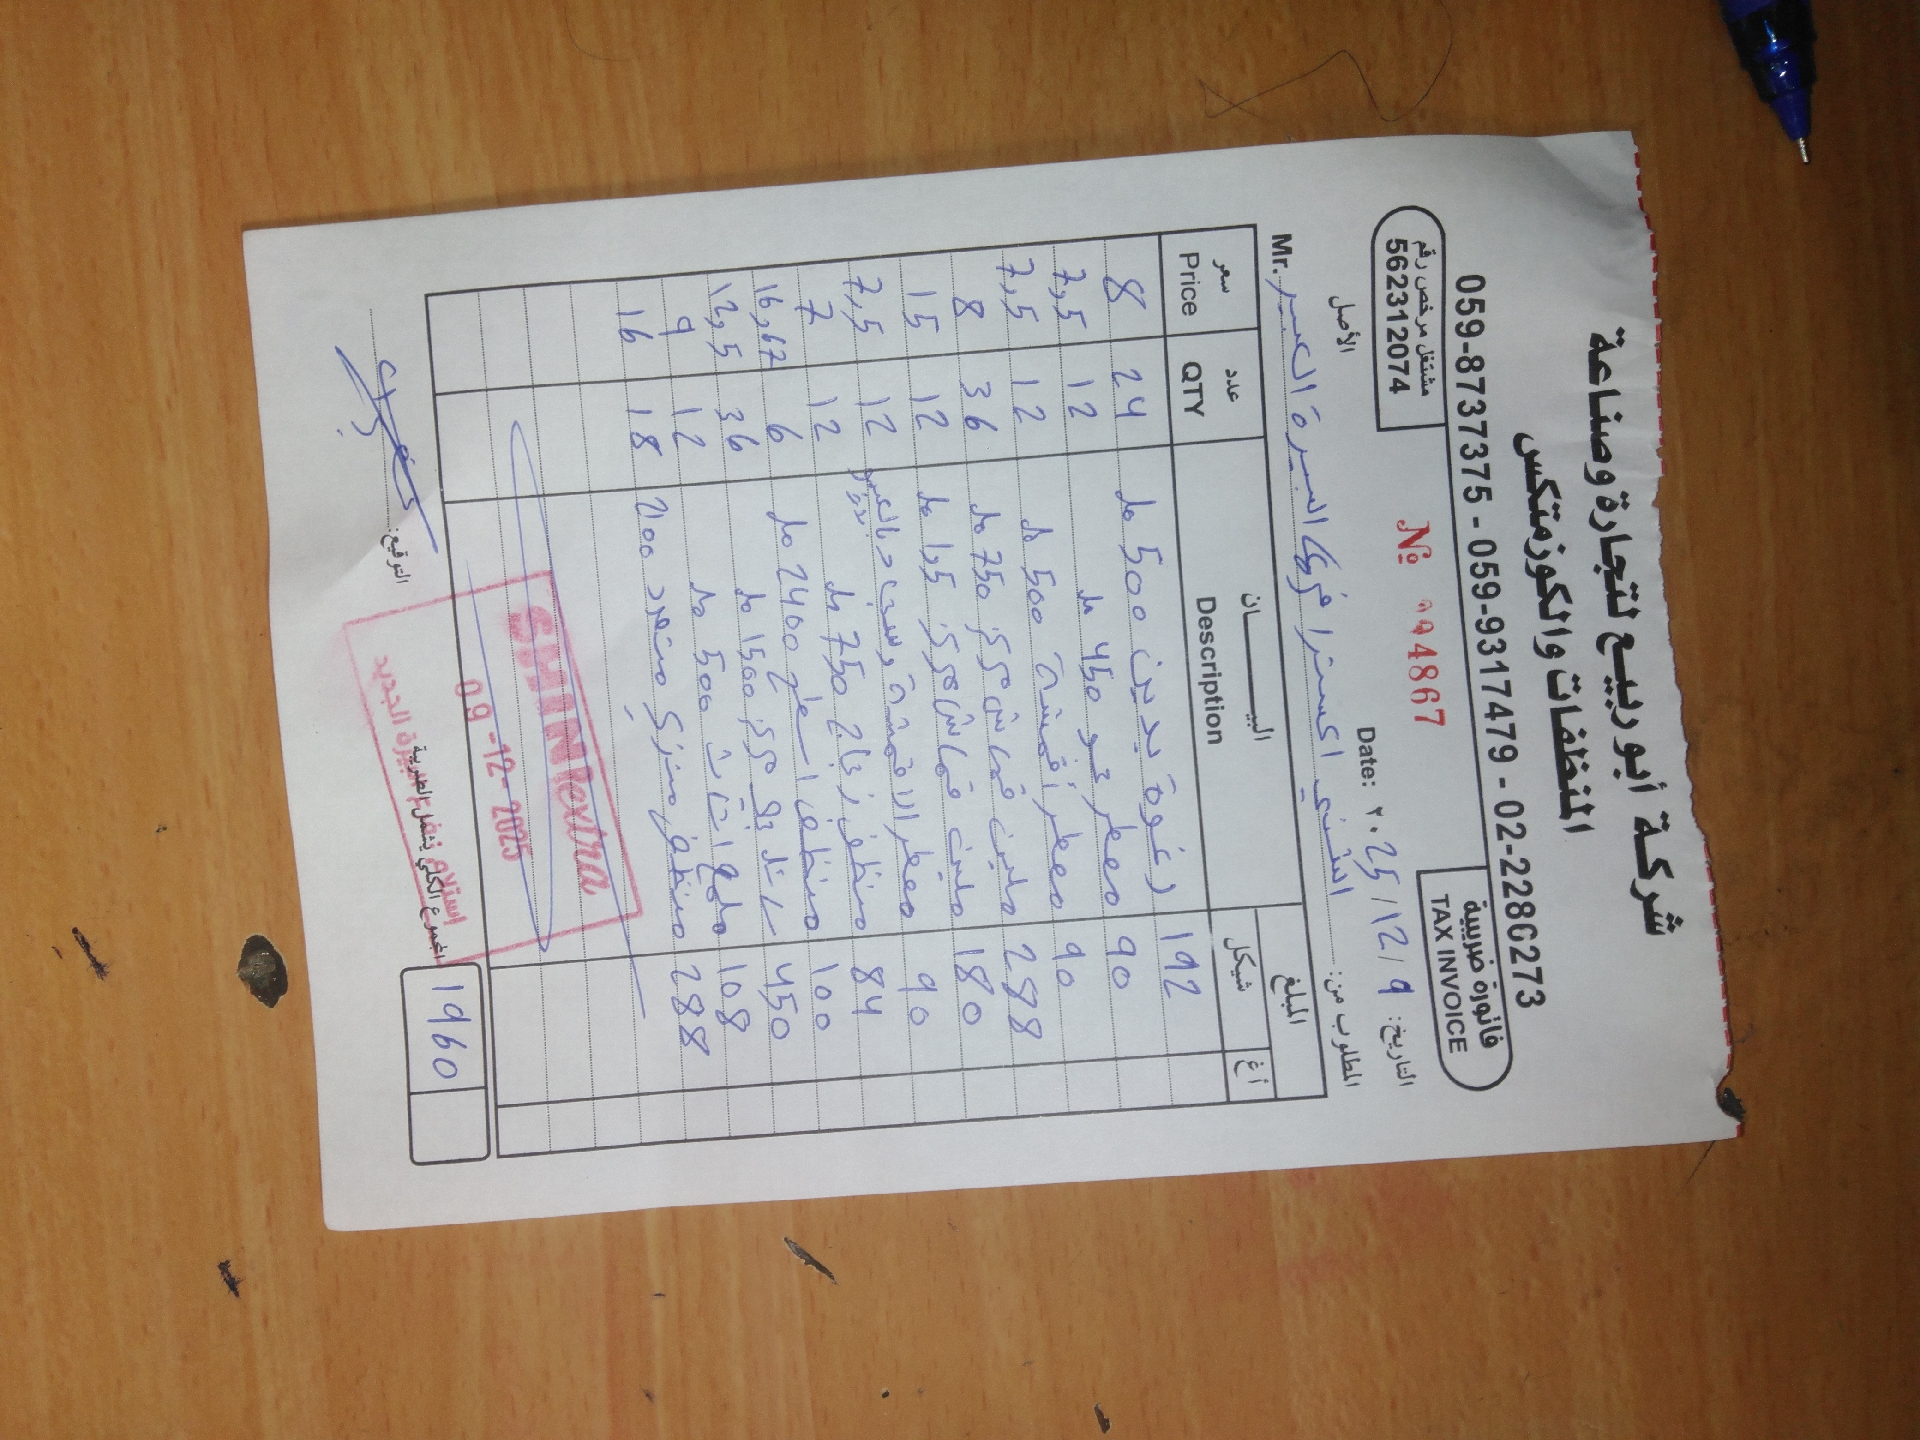 شركة أبو ربيع لتجارة وصناعة
المنظفات والكوزمتكس
059-8737375 - 059-9317479 - 02-2280273
مشتغل مرخص رقم
562312074
فاتورة ضريبية
TAX INVOICE
الأصل
№ 994867
Date: ٢٠25/12/9 التاريخ:
Mr. الشني اكسترا فرع البيرة المطلوب من:
سعر Price عدد QTY البيـــــان Description المبلغ شيكل أغ
8 24 رغوة يدين 500 مل 192
7,5 12 معطر جو 450 مل 90
7,5 12 معطر أقمشة 500 مل 90
8 36 ملين قماش 750 مل 288
15 12 ملين قماش 1,5 مل 180
7,5 12 معطر الاقمشة 90
7 12 منظف زجاج 750 مل 84
16,67 6 منظف اسطح 2400 مل 100
12,5 36 1500 مل 450
9 12 ملمع اثاث 500 مل 108
16 18 منظف منزلي متعدد 288
SHINIextra
09-12-2025
استلام فرع البيرة الجديد
المجموع الكلي يشمل الضريبة 1960
التوقيع: